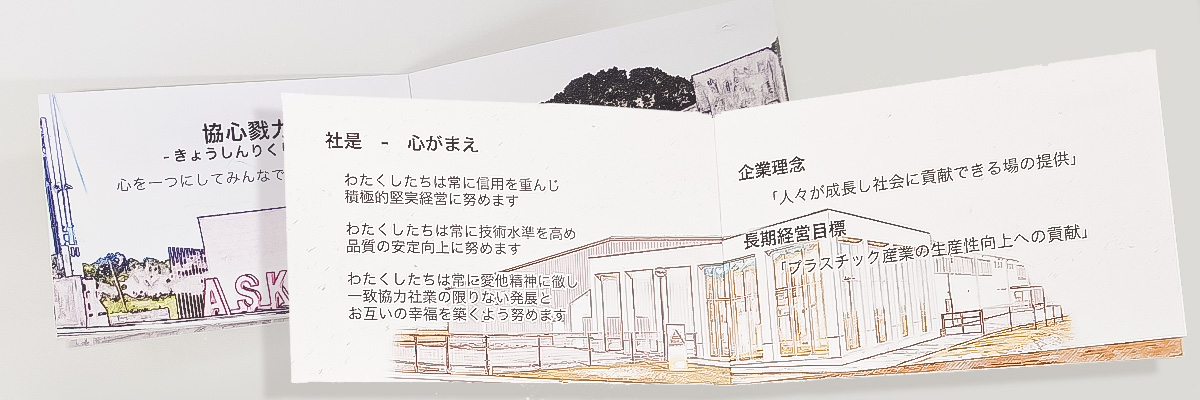 協心戮力
-きょうしんりくり
心を一つにしてみんなで
ASK
社是 - 心がまえ
わたくしたちは常に信用を重んじ
積極的堅実経営に努めます
わたくしたちは常に技術水準を高め
品質の安定向上に努めます
わたくしたちは常に愛他精神に徹し
一致協力社業の限りない発展と
お互いの幸福を築くよう努めます
企業理念
「人々が成長し社会に貢献できる場の提供」
長期経営目標
「プラスチック産業の生産性向上への貢献」